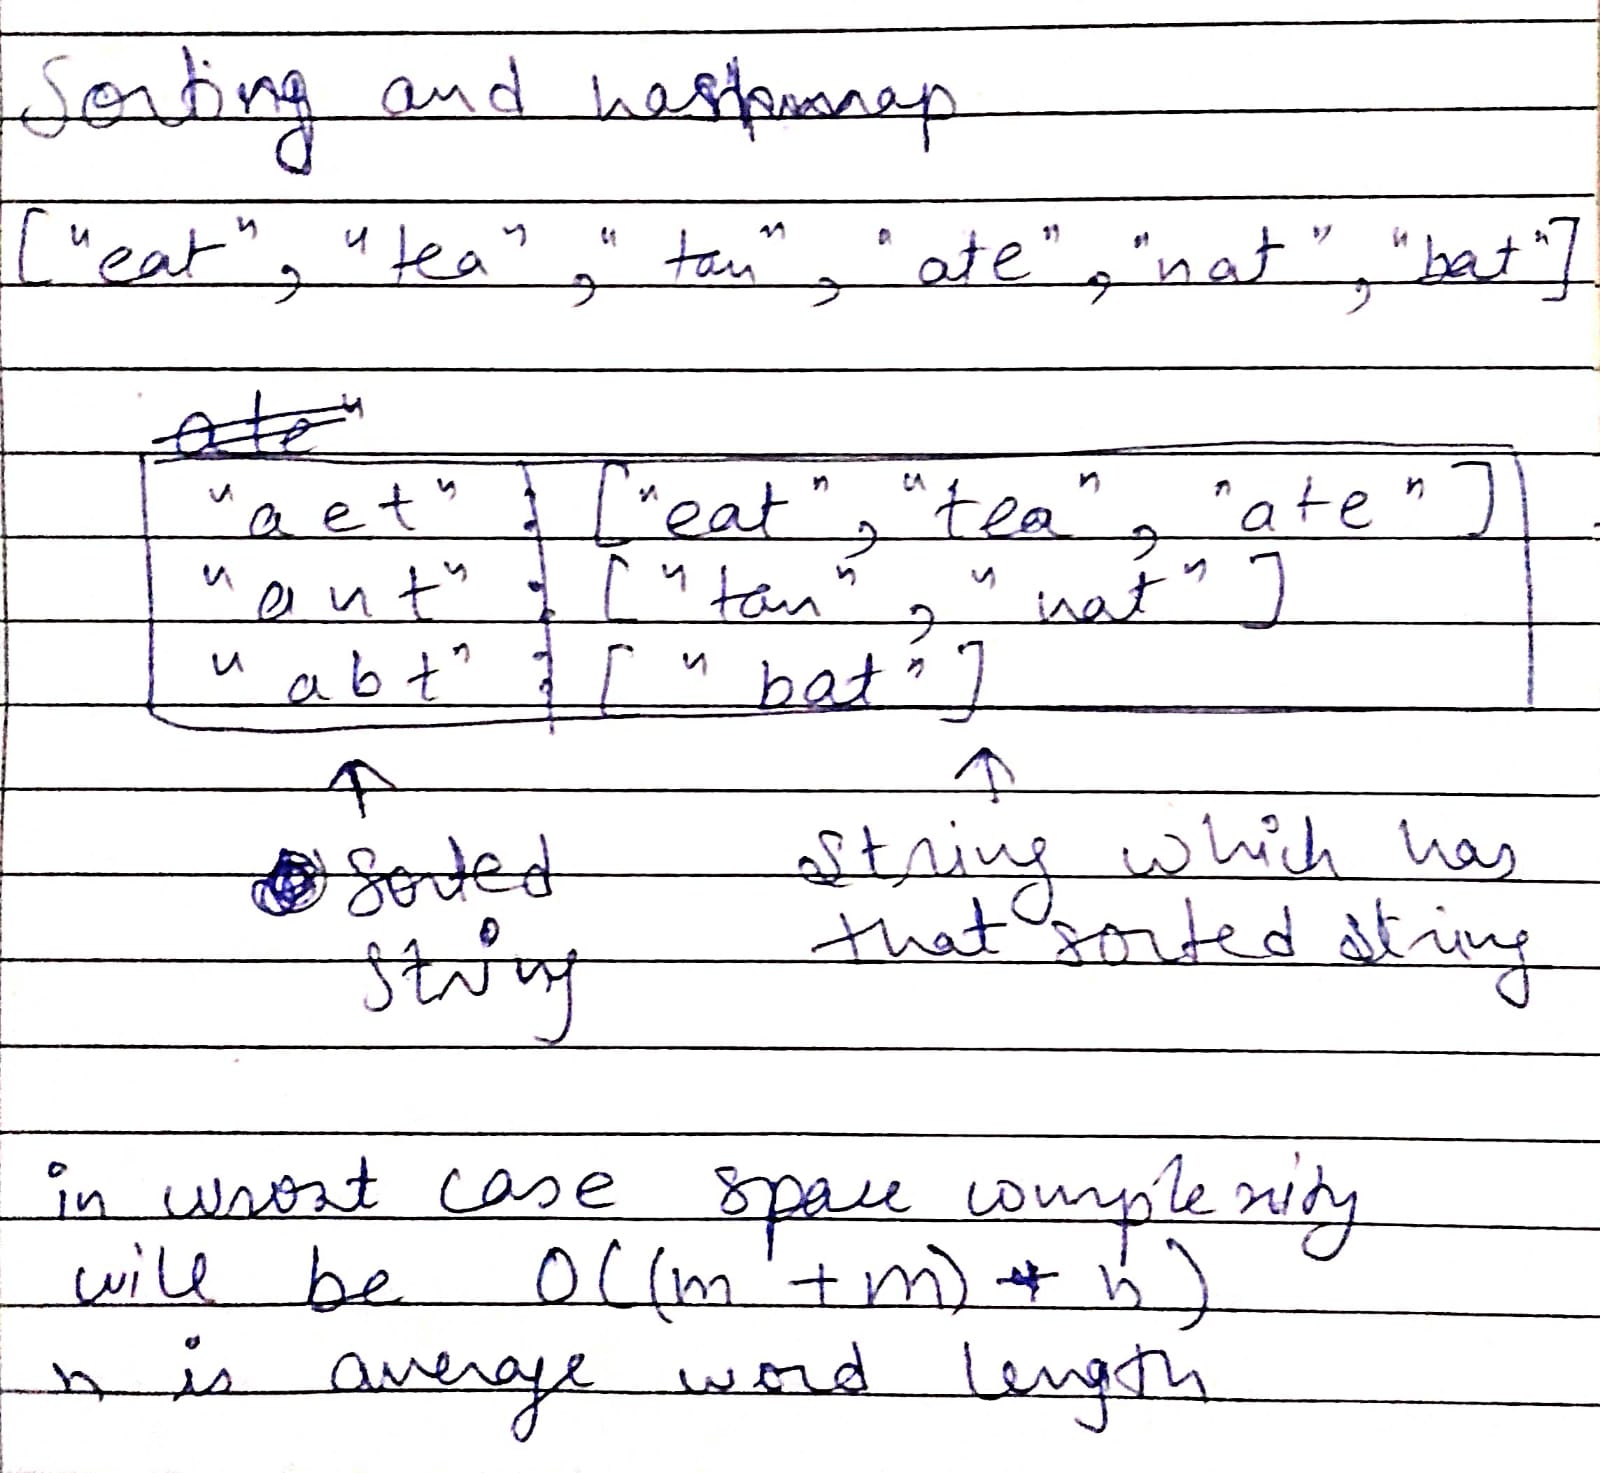 Sorting and hashmap
["eat", "tea", "tan", "ate", "nat", "bat"]
ate"
"aet" : ["eat", "tea", "ate"]
"ant" : ["tan", "nat"]
"abt" : ["bat"]
↑ ↑
Sorted string which has
string that sorted string
in wrost case space complexity
will be O((m + m) * n)
n is average word length